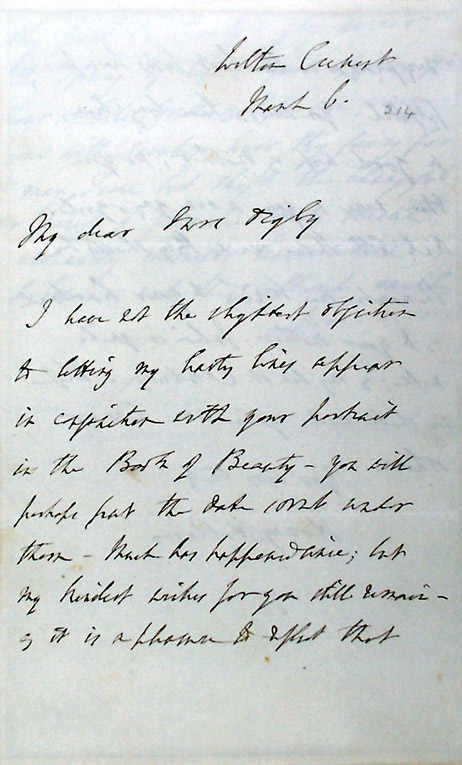 Wilton Crescent
March 6.
214
My dear Miss Rigby
I have not the slightest objection
to letting my hasty lines appear
in conjunction with your portrait
in the Book of Beauty - you will
perhaps put the date under
them - Much has happened since; but
my kindest wishes for you still remain -
& it is a pleasure to reflect that